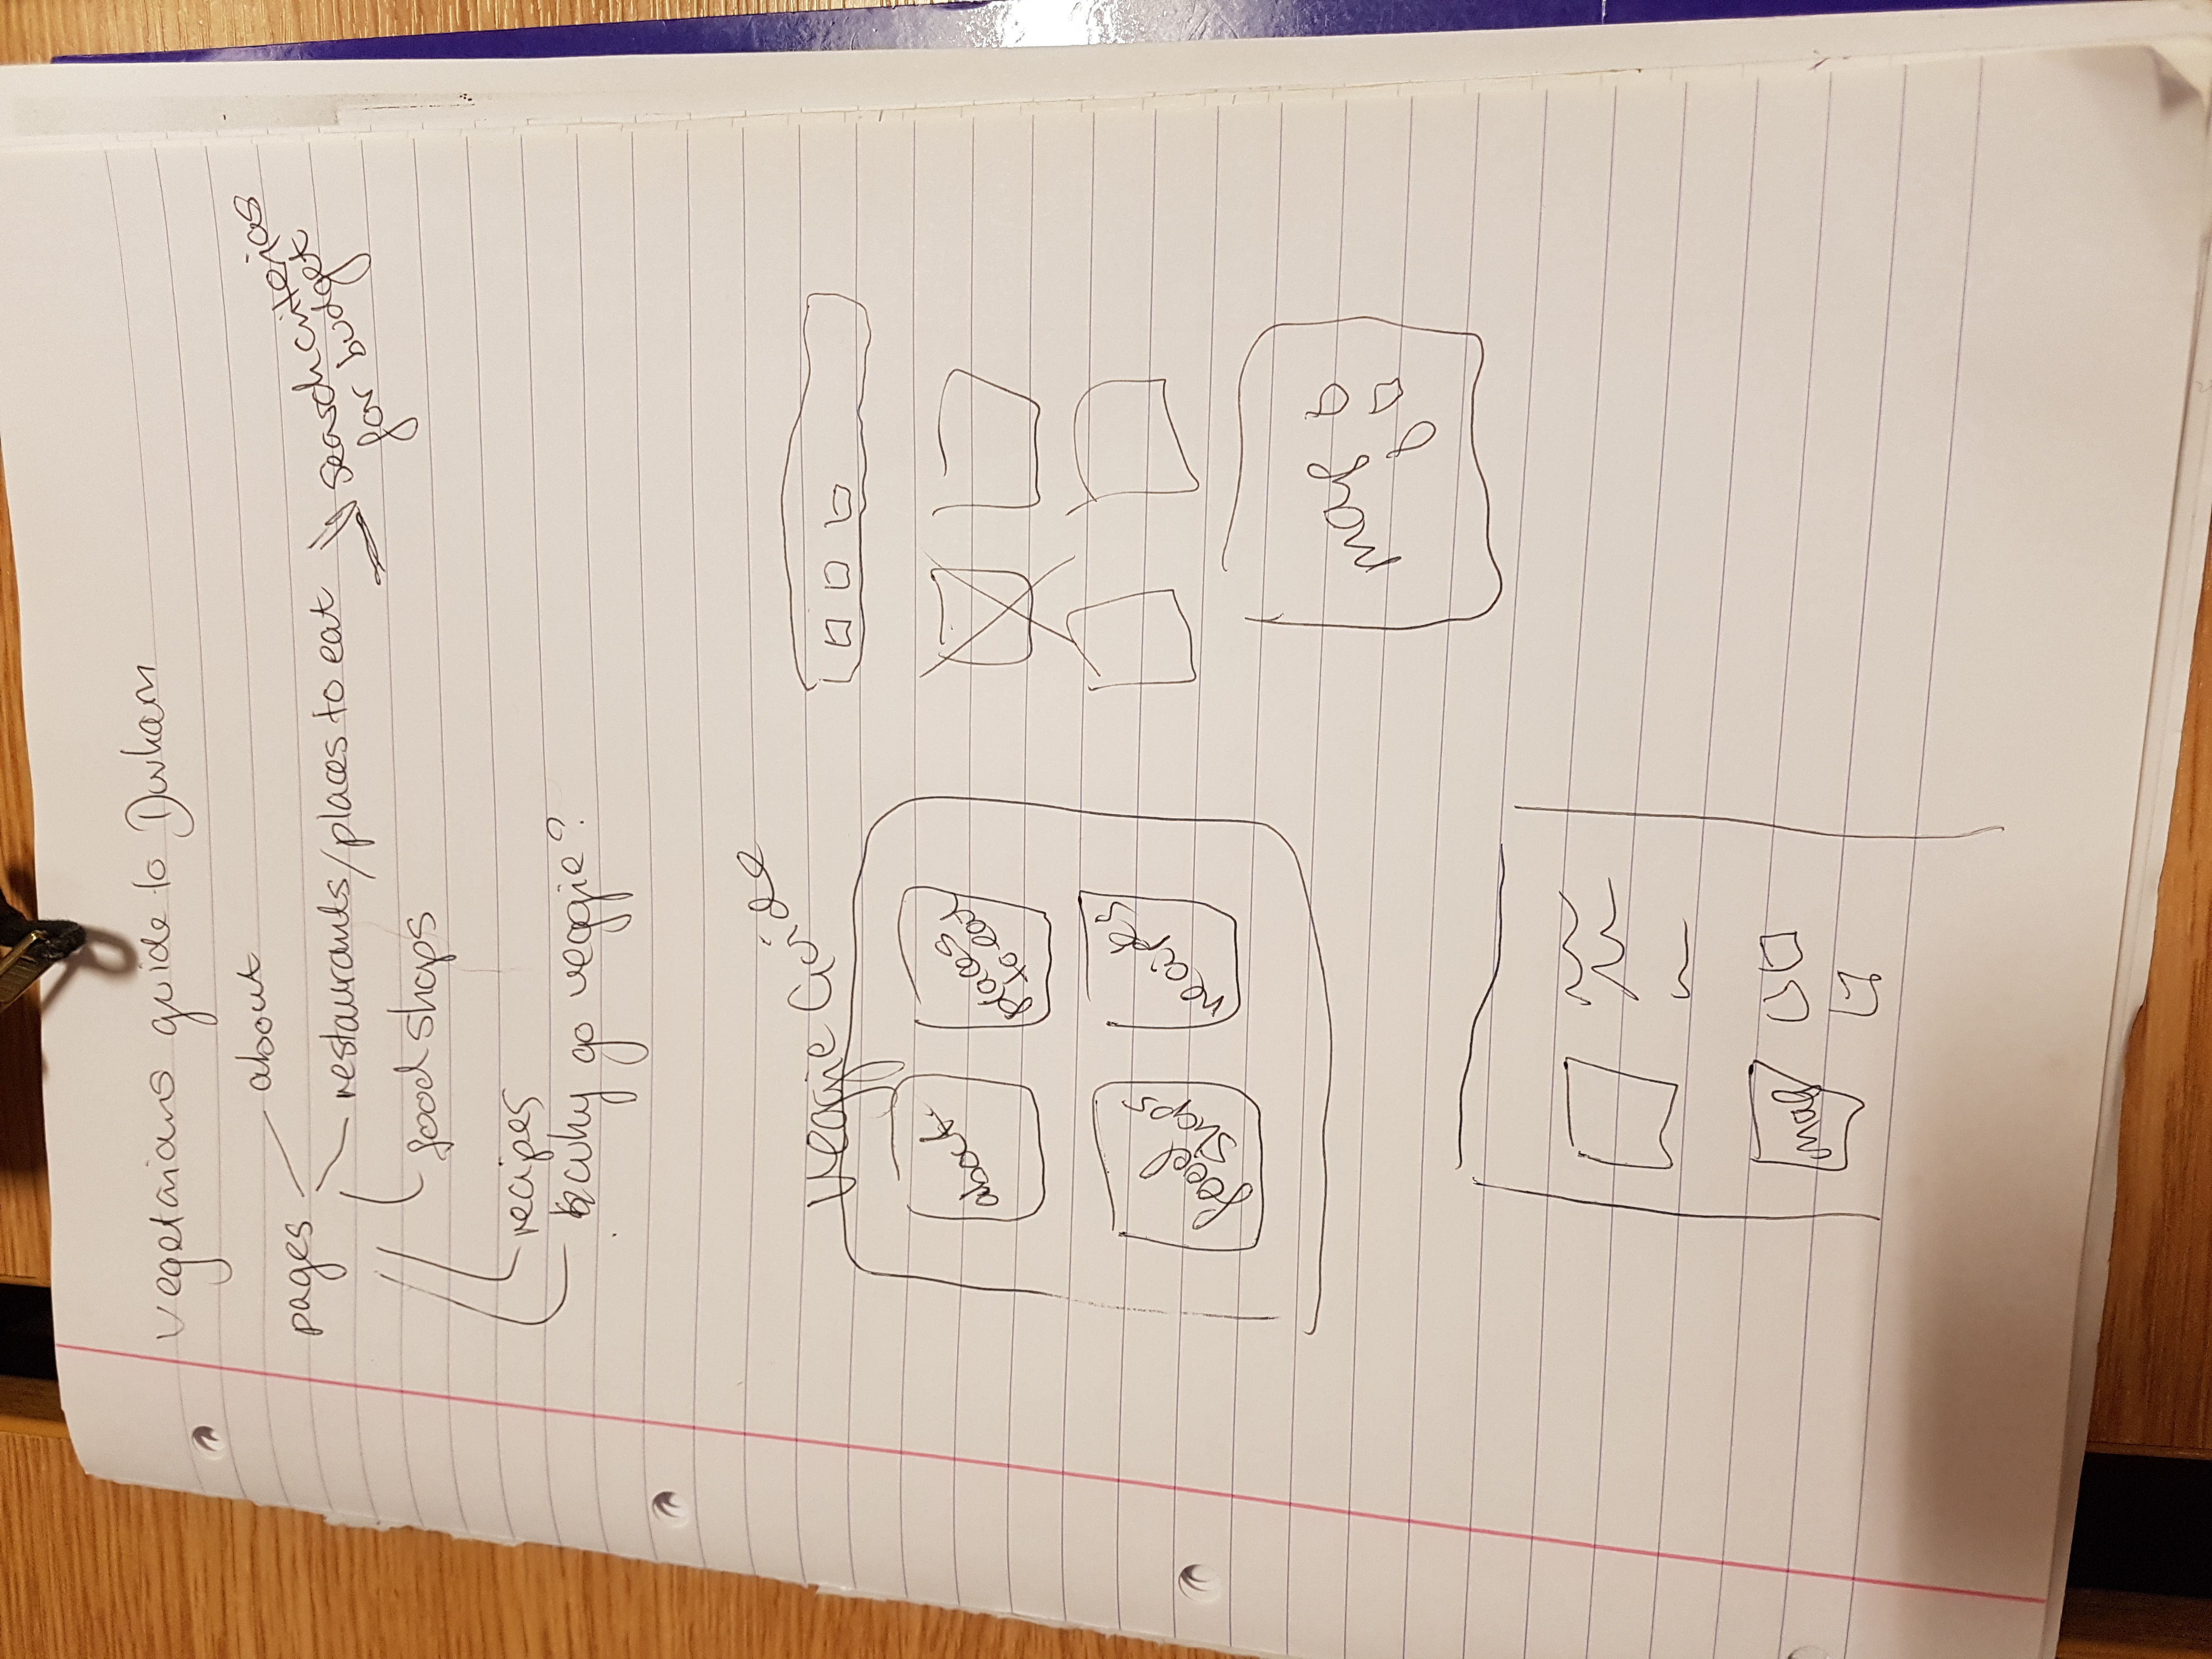 vegetarians guide to Durham
about
pages
restaurants/places to eat
search criterias
for budget
food shops
recipes
why go veggie?
Veggie Guide
about
places
to eat
food
shops
recipes
map
map